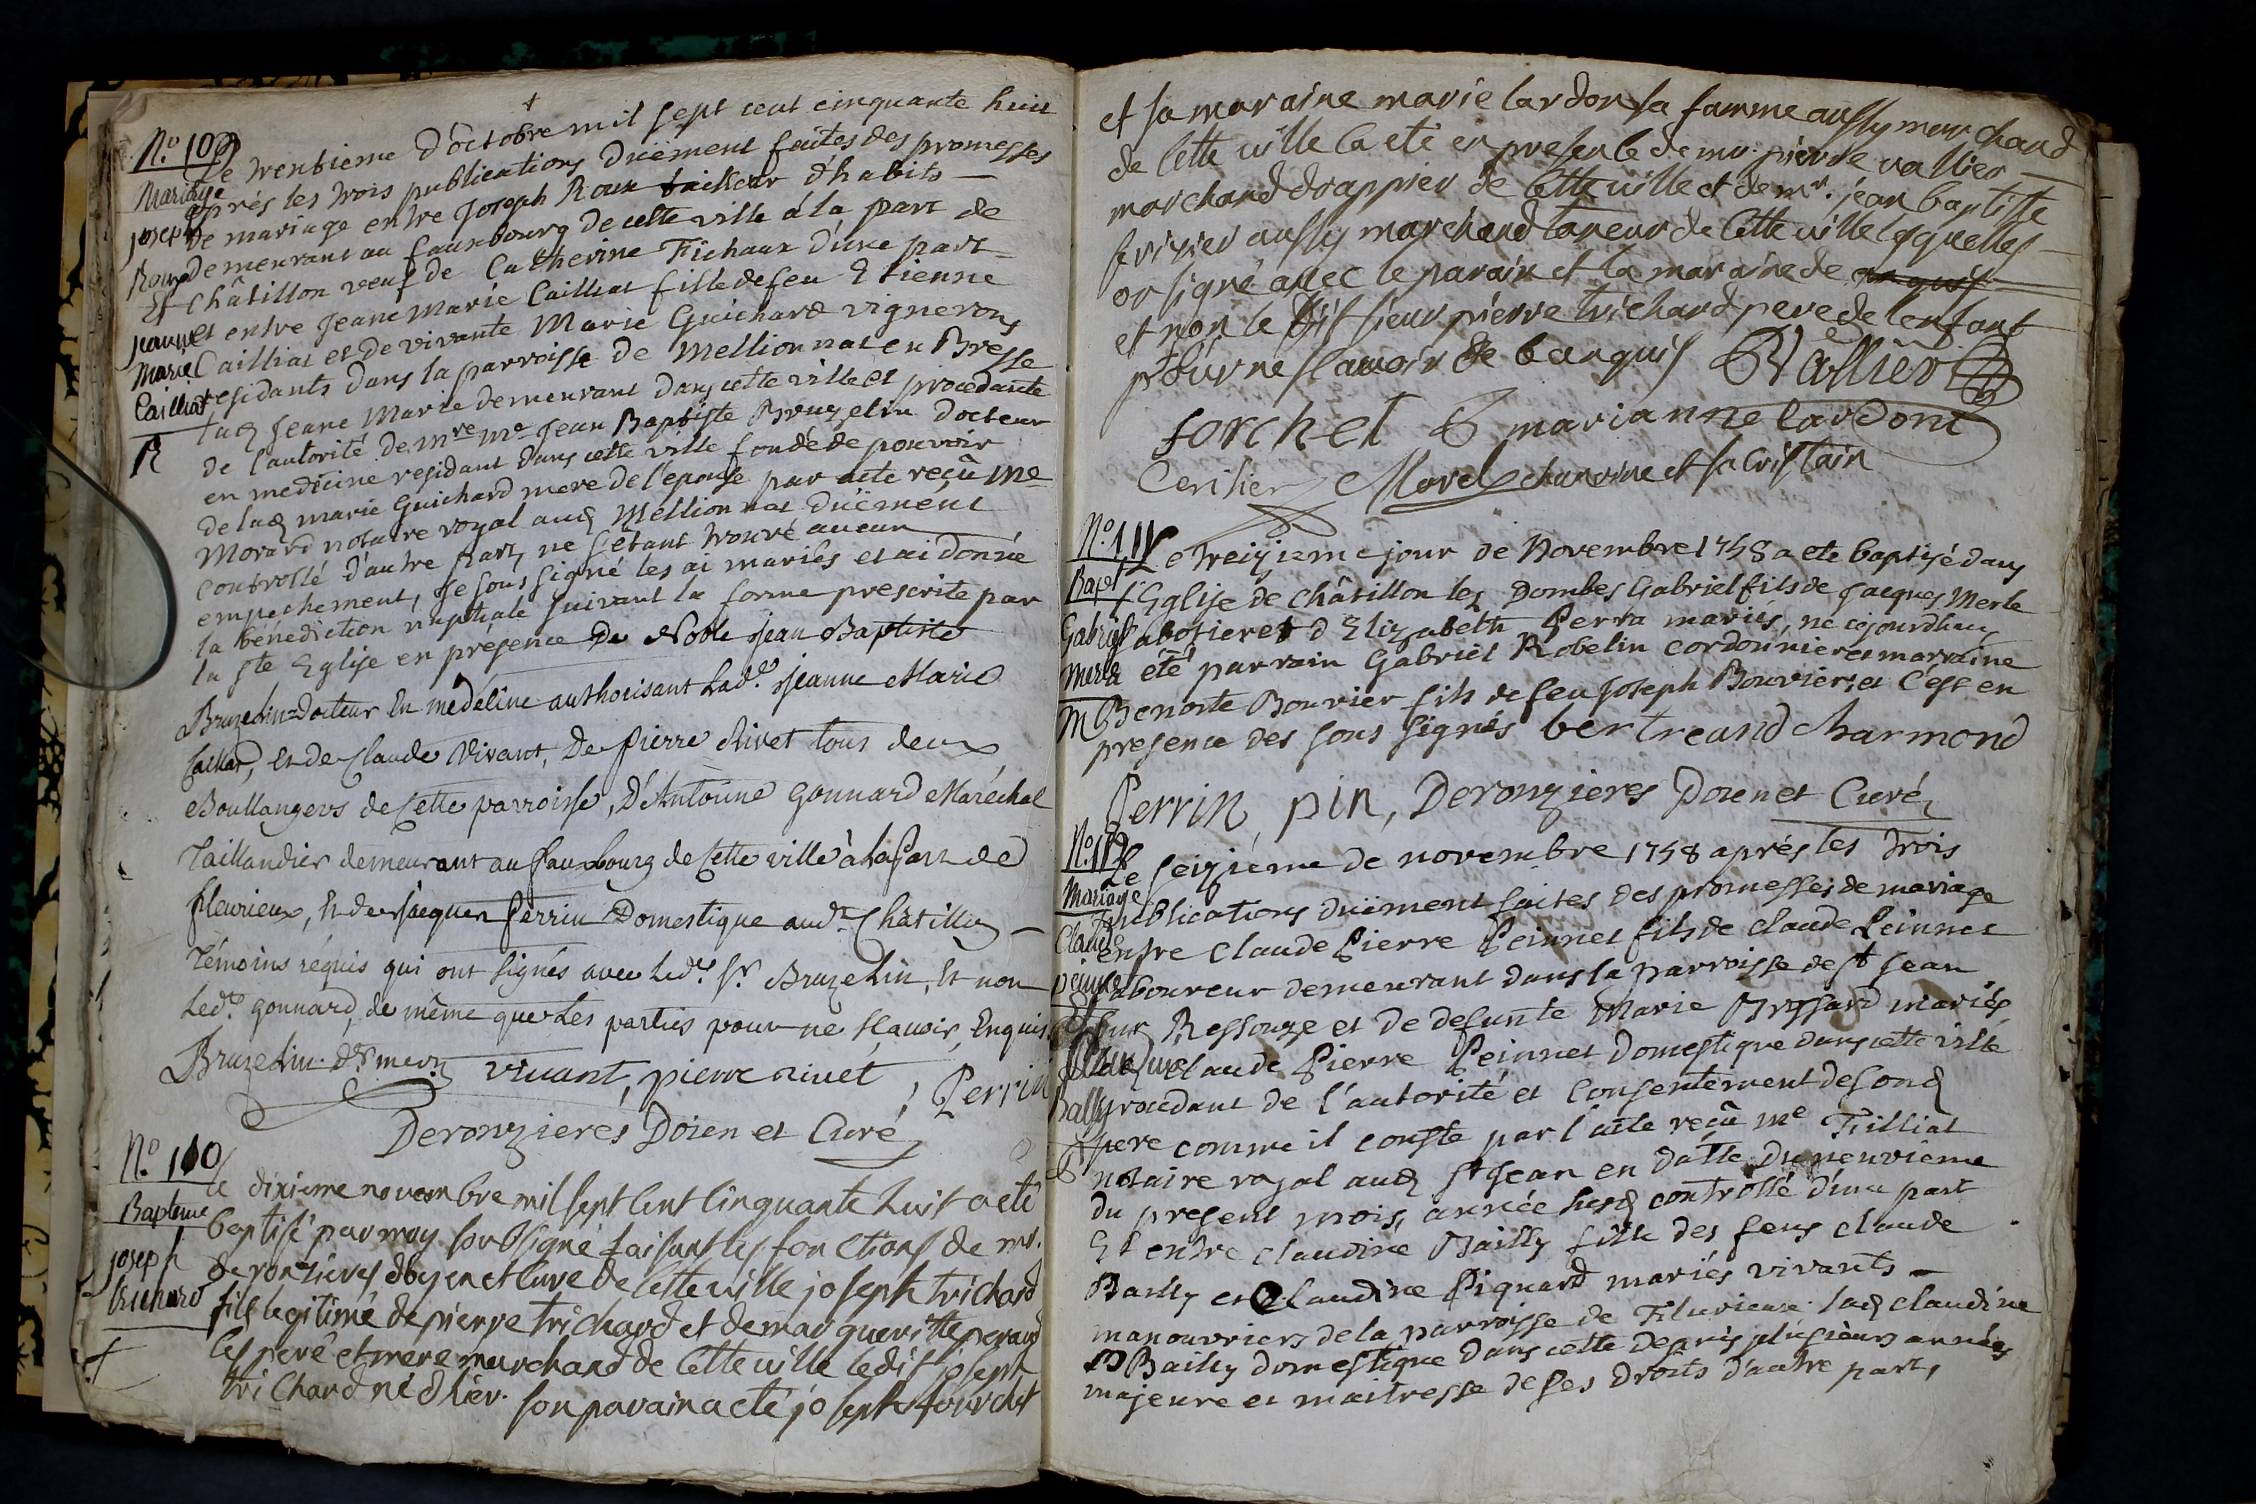 N.o 109
Le trentieme d'octobre mil sept cent cinquante huit
Mariage
aprés les trois publications duëment faites des promesses
de mariage entre Joseph Roux tailleur d'habits
joseph
Roux
demeurant au fauxbourg de cette ville á la part de
Châtillon veuf de Catherine Fichaux d'une part
Et
jeanne
et entre Jeane Marie Cailliat fille de feu Etienne
Marie
Cailliat et de vivante Marie Guichard vignerons
Cailliat
residants dans la parroisse de Mellionnas en Bresse
R
lad Jeane Marie demeurant dans cette ville et procedante
de l'autorité de mre me Jean Baptiste Bruzelin docteur
en medecine residant dans cette ville fondé de pouvoir
de lad marie Guichard mere de l'epouse par acte reçû me
Morard notaire royal aud Mellionnas duëment
controllé d'autre part, ne s'etant trouvé aucun
empechement, Je sous signé les ai mariés et ai donné
la bénédiction nuptiale suivant la forme prescrite par
la ste Eglise en présence De Noble Jean Baptiste
Bruzelin Docteur En medecine authorisant Lade. Jeanne Marie
Cailliad, Et de Claude Vivant, De pierre Rivet tous deux
Boullangers de Cette parroisse, D'Antoine gonnard Maréchal
Taillandier demeurant au fauxbourg de Cette ville à la part de
fleurieux, Et de Jacques perrin Domestique aud. Châtillon
Témoins réquis qui ont signés avec Led. Sr. Bruzelin, Et non
Led. gonnard, de même que Les partis pour ne sçavoir, Enquis
Bruzelin dr med vivant, pierre rivet, Perrin
Deronzieres Doien et Curé
N.o 110
le dixieme novembre mil sept cent cinquante huit a eté
Bapteme
baptisé par moy soubsigné faisant les fonctions de mr.
joseph
deronzieres doyen et cure de cette ville joseph trichard
trichard
fils legitime de pierre trichard et de marguerite peraud
les pere et mere marchand de cette ville ledit joseph
trichard né d'hier. son parain a eté joseph fourchet
et sa maraine marie lardon sa famme aussy marchand
de cette ville la eté en presence de mr. pierre vallier
marchand drappier de cette ville et de mr. jean baptiste
serisier aussy marchand taneur de cette ville lesquelles
on signé avec le parain et la maraine de enquis
et non le dit sieur pierre trichard pere de lenfant
pour ne scavoir de ce enquis Vallier
forchet marianne lardont
Cerisier Morel chanoine et sacristain
N.o 111
Le treizieme jour de Novembre 1758 a eté baptisé dans
Bapt
l'Eglise de châtillon les Dombes Gabriel fils de Jacques Merle
Gabriel
labotier et d'Elizabeth Perra mariés, né cejourdhuy
Merle
a été parrain Gabriel Robelin cordonnier et marraine
M
Benoite Bouvier fils de feu Joseph Bouvier, et c'est en
presence des sous signés bertreand charmond
Perrin, pin, Deronzieres Doien et Curé
N.o 112
Le seizieme de novembre 1758 aprés les trois
Mariage
publications duëment faites des promesses de mariage
Claude
entre Claude Pierre Peinnet fils de Claude Peinnet
peinnet
laboureur demeurant dans la parroisse de st Jean
Et
sur Ressouze et de defunte Marie Brossard mariés
Claudine
led Claude Pierre Peinnet domestique dans cette ville
Bailly
procedant de l'autorité et consentement de sond
pere comme il conste par l'acte reçû me Filliat
notaire royal aud st Jean en datte du neuvieme
du present mois, année susd controllé d'une part
Et entre Claudine Bailly fille des feus Claude
Bailly et Claudine Piquard mariés vivants
manouvriers de la parroisse de Flurieux. lad Claudine
Bailly domestique dans cette depuis plusieurs années
majeure et maitresse de ses droits d'autre part,